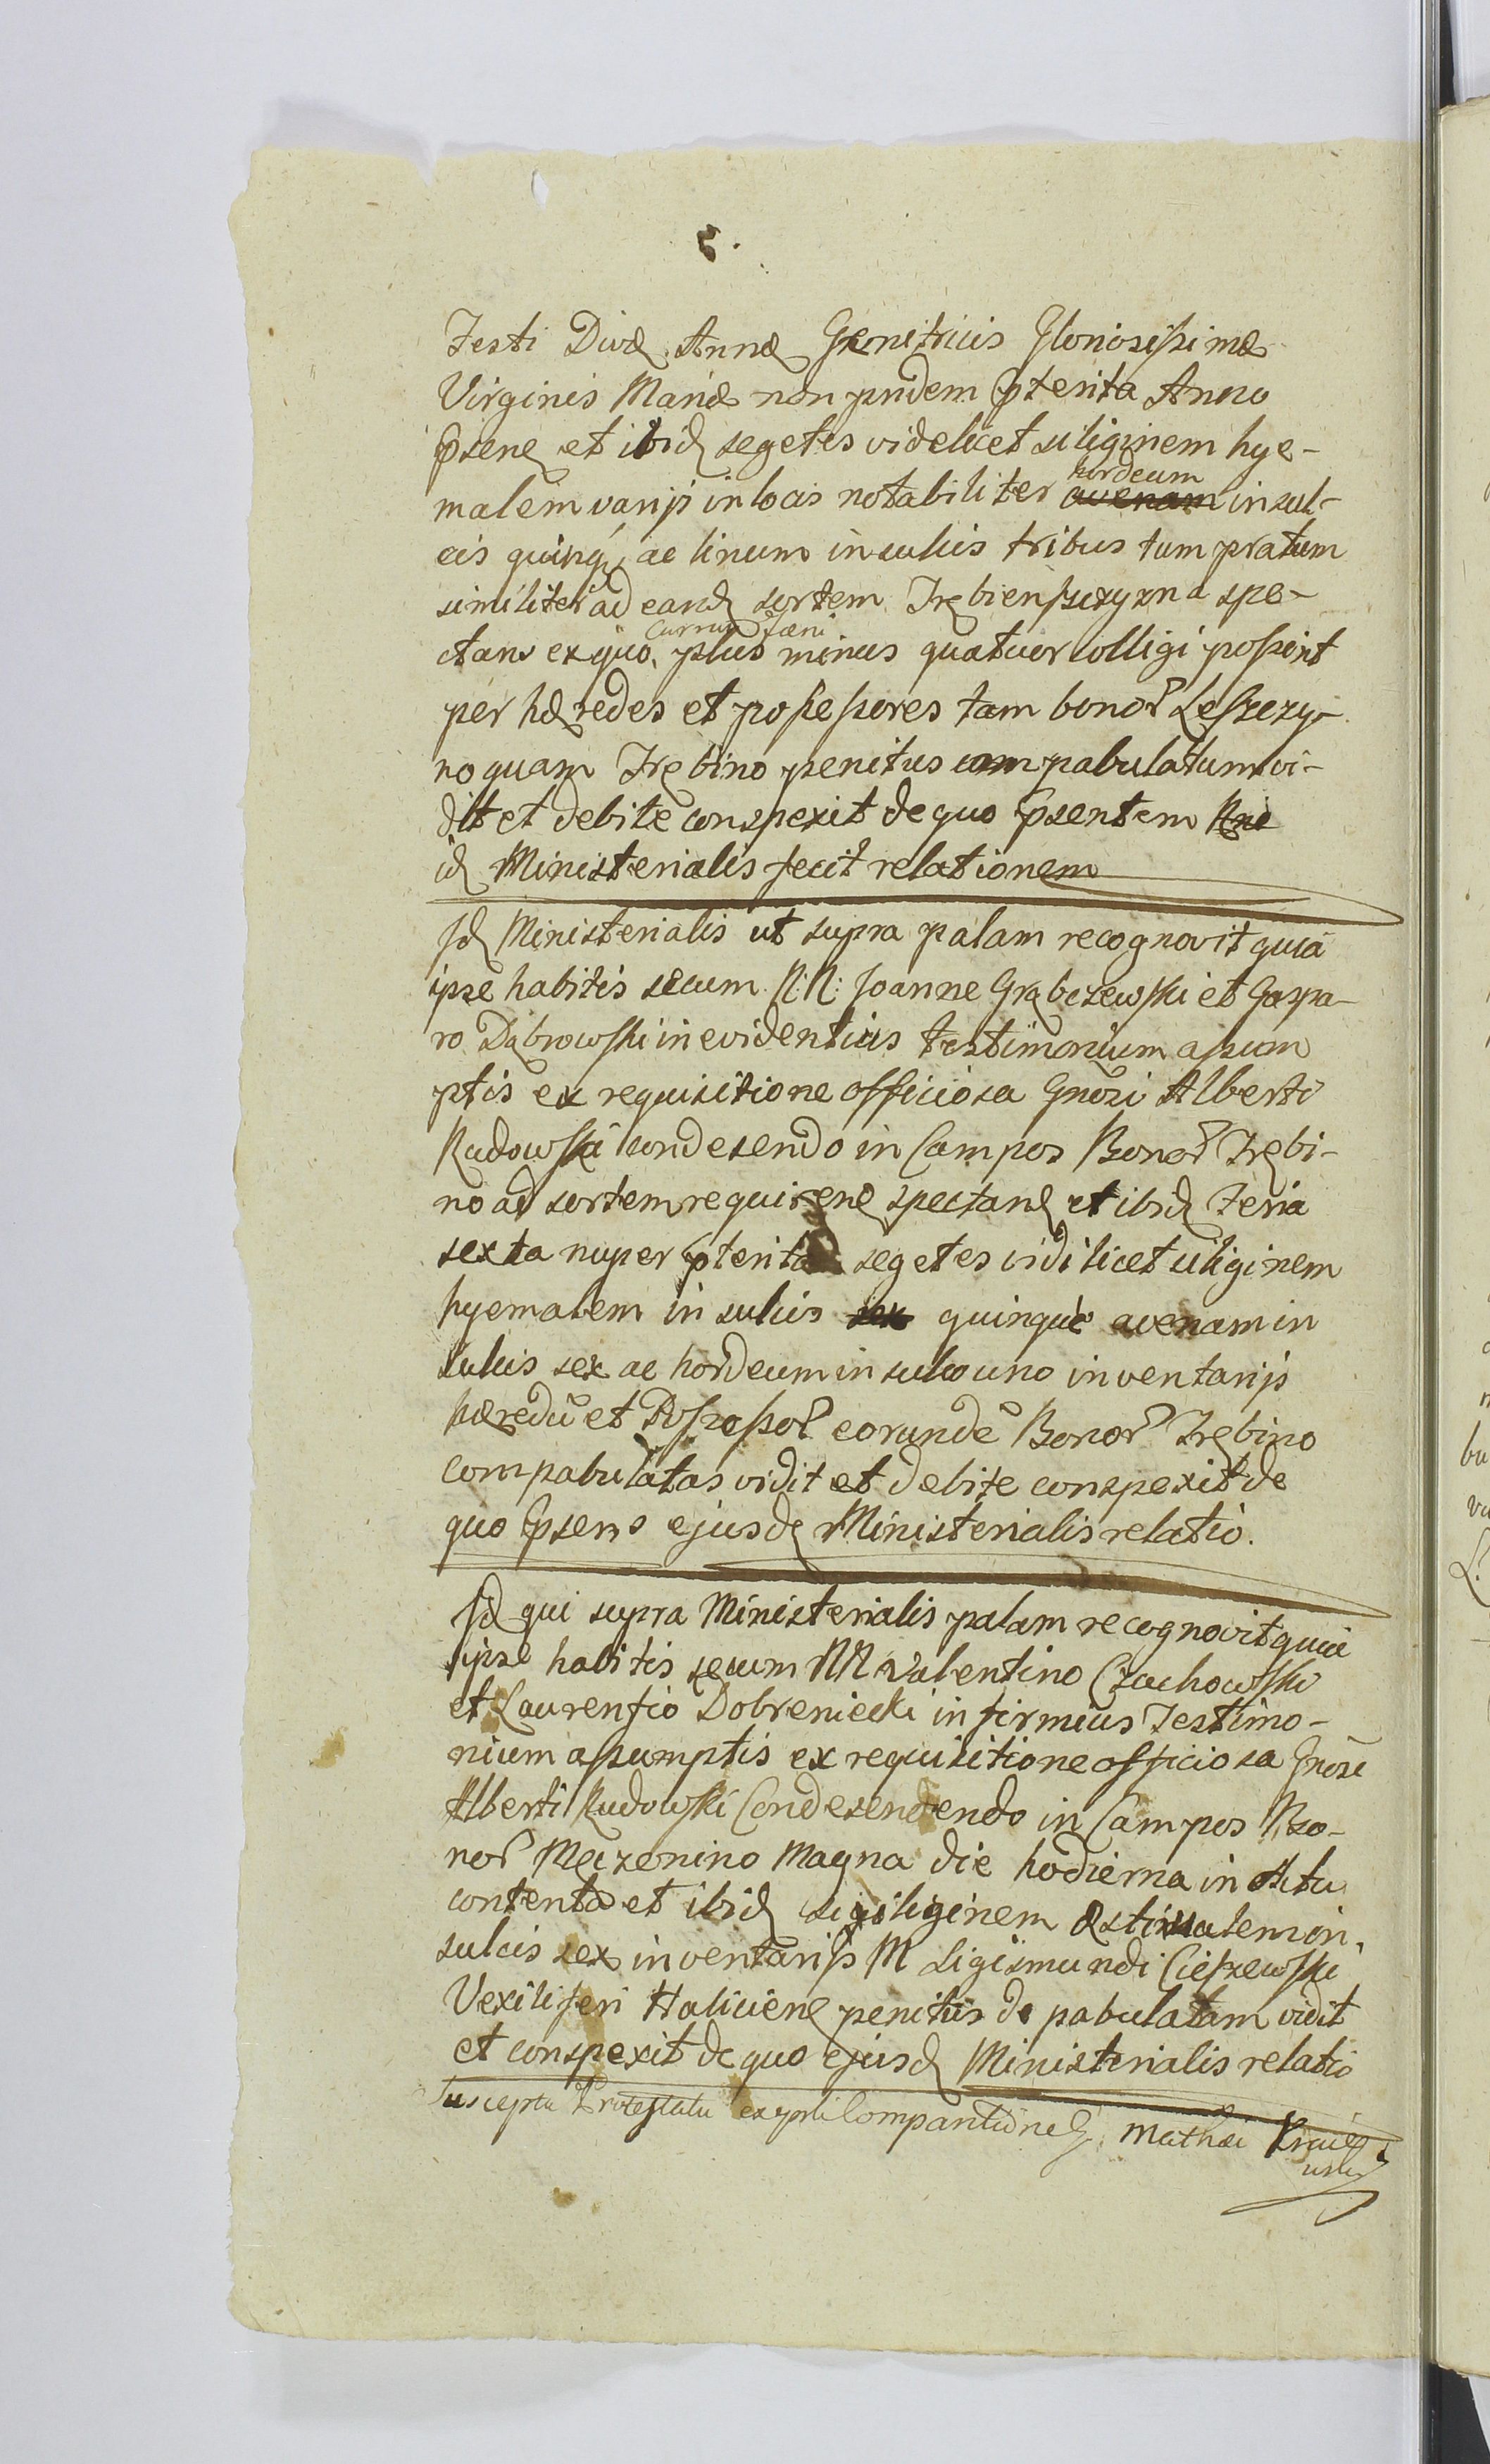 5.
Festi Divæ Annæ Genitricis Gloriosissimæ
Virginis Mariæ non pridem pterita Anno
psenę et ibidę segetes videlicet siliginem hye-
malem varijs in locis notabiliter hordeum avenam in sul-
cis quinqȝ ac linum in sulcis tribus tum pratum
similiter ad eandę sortem Trębienszczyzna spe-
ctans ex quo currus fæni plus minus quatuor colligi possent
per hæredes et possessores tam bonor Leszczy-
no quam Trębino penitus compabulatum vi-
dit et debite conspexit de quo psentem
idę Ministerialis fecit relationem
Idę Ministerialis ut supra palam recognovit quia
ipse habitis secum N: N: Joanne Grąbczewski et Gaspa-
ro Dąbrowski in evidentius testimonium assum
ptis ex requisitione officiosa Gnosi Alberti
Rudowski condesendo in Campos Bonor Trębi-
no ad sortem requirenę spectanę et ibidę Feria
sexta nuper pterita segetes vidilicet siliginem
hyemalem in sulcis sex quinque avenam in
sulcis sex ac hordeum in sulco uno inventarijs
hæredū et Possessor eorundē Bonor Trębino
compabulatas vidit et debite conspexit de
quo psens ejusdę Ministerialis relatio.
Idę qui supra Ministerialis palam recognovit quia
ipse habitis secum NN Valentino Czachowski
et Laurentio Dobreniecki in firmius Testimo-
nium assumptis ex requisitione officiosa Gnosi
Alberti Rudowski Condesendendo in Campos Bo-
nor Mezenino Magna die hodierna in Actu
contenta et ibidę sigiliginem æstivalem in
sulcis sex inventarijs M Sigismundi Cieszewski
Vexiliferi Halicienę penitus de pabulatam vidit
et conspexit de quo ejusdę Ministerialis relatio
Suscepta Protestatu Mathæi